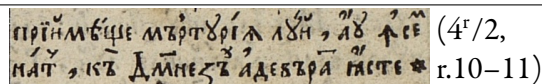 прїи́мѣще мъртꙋрїѧ лꙋ́й, аꙋ ꙟсеⷨ
на́т, къ Дⷨнеꙁъꙋ̆ адевъраⷮ ꙗ́сте *
(4ʳ/2,
r.10–11)